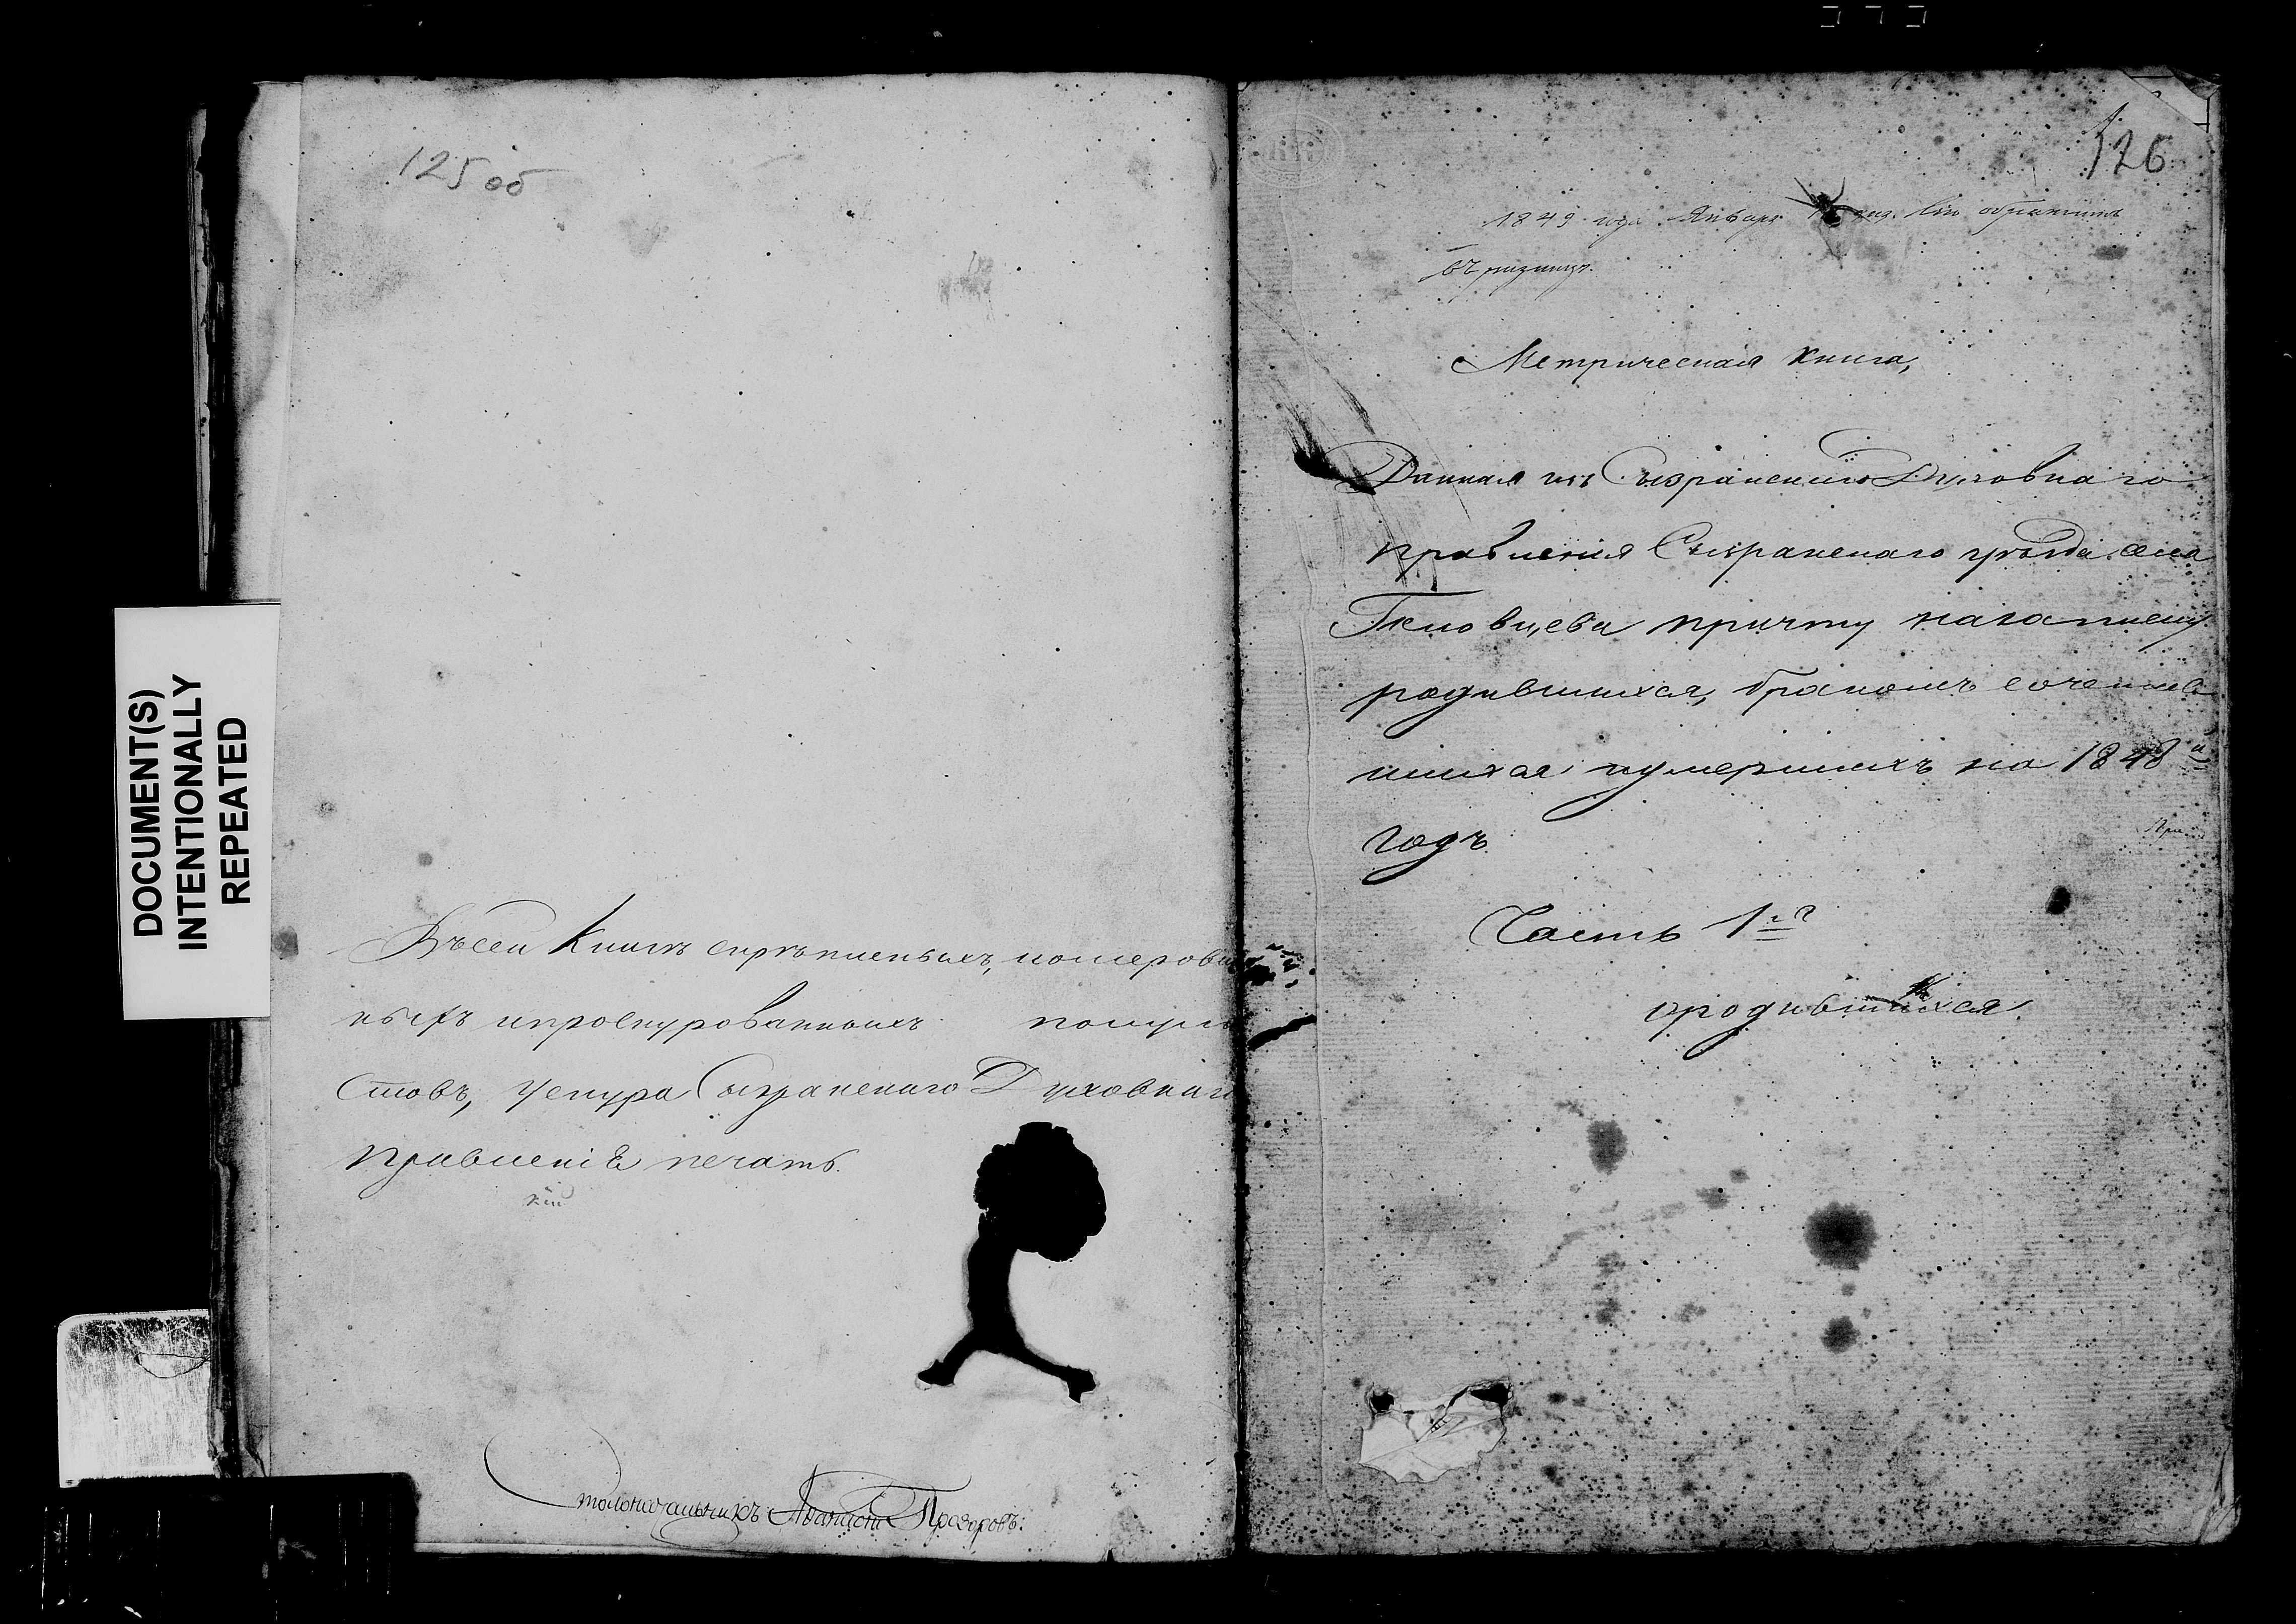 DOCUMENT(S)
INTENTIONALLY
REPEATED
125 об
Въ сей Книгѣ скрѣпленныхъ, номерован
ныхъ и прошнурованныхъ
Стовъ, у шнура Сызранскаго Духовнаго
Правленія печать.
Столоначальникъ Аѳанасій Прозоровъ:
126
1849 года Января обратить
въ ризницу.
Метрическая книга,
Данная изъ Сызранскаго Духовнаго
правленія Сызранскаго уѣзда села
причту на записку
родившихся, бракомъ сочетав
шихся и умершихъ на 1848й
годъ.
Часть 1я
о родившихся.